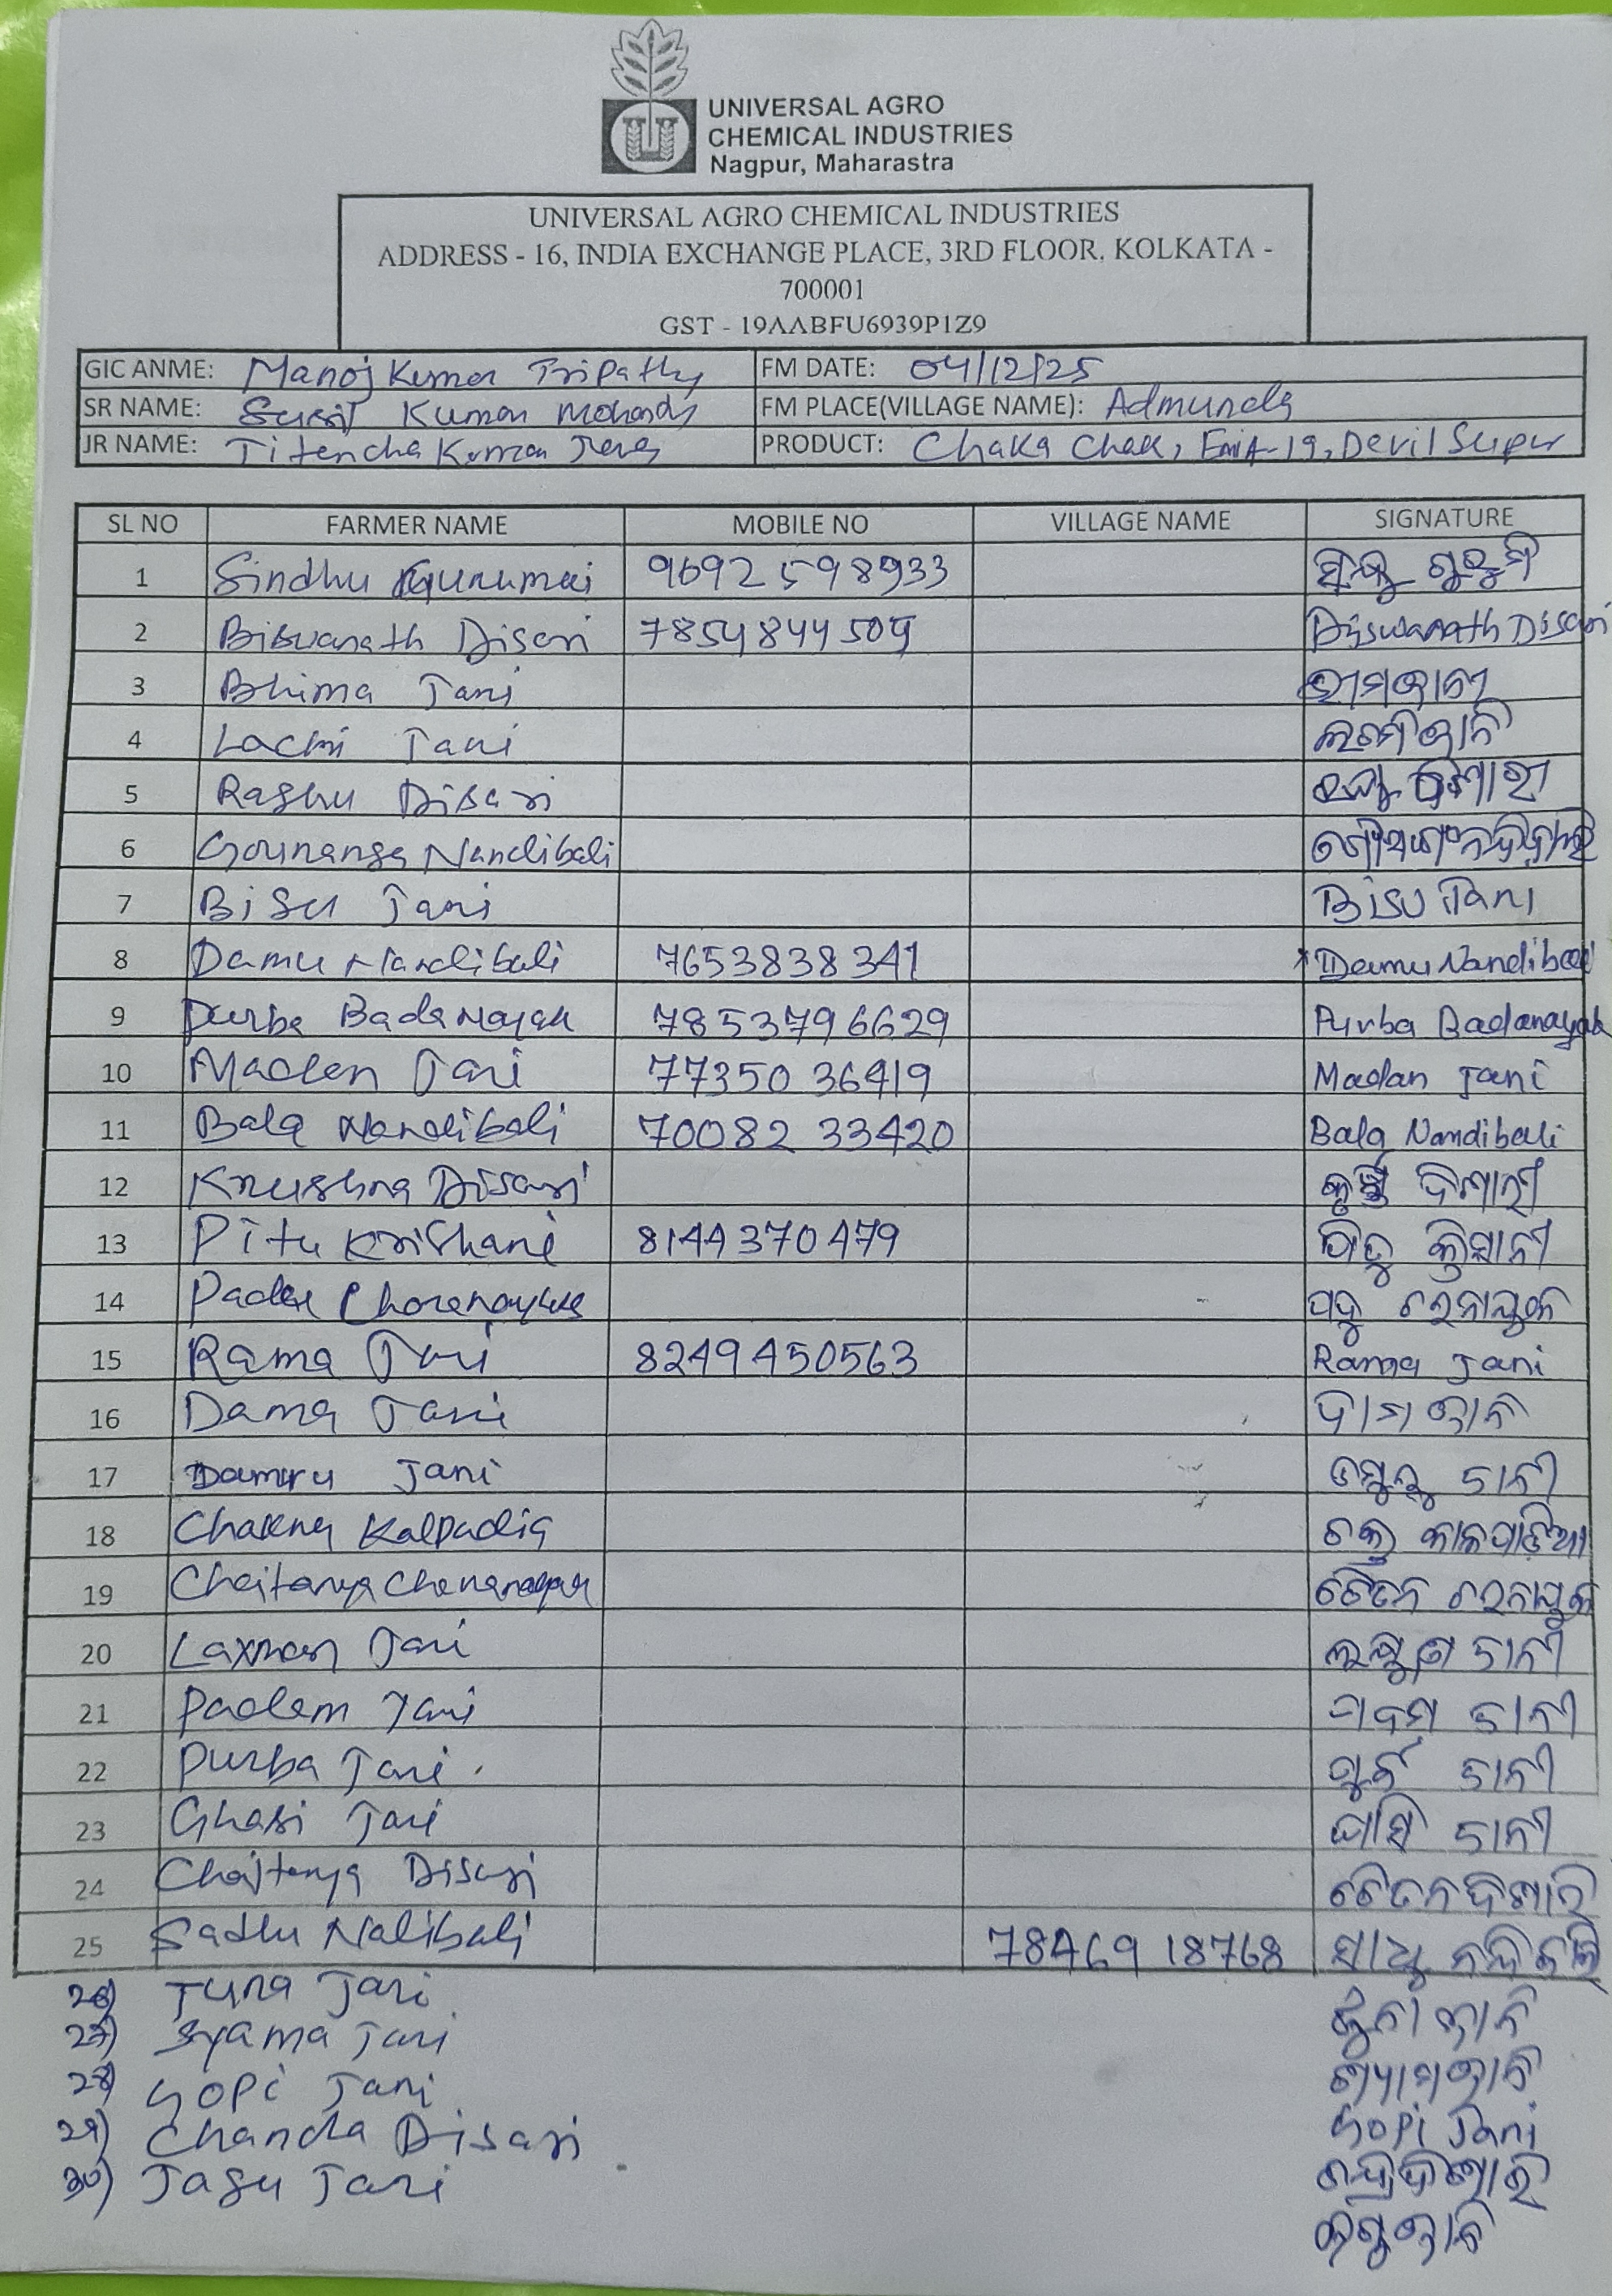 UNIVERSAL AGRO
CHEMICAL INDUSTRIES
Nagpur, Maharastra
UNIVERSAL AGRO CHEMICAL INDUSTRIES
ADDRESS - 16, INDIA EXCHANGE PLACE, 3RD FLOOR, KOLKATA -
700001
GST - 19AABFU6939P1Z9
GIC ANME: Manoj Kumar Tripathy FM DATE: 04/12/25
SR NAME: Kumar FM PLACE(VILLAGE NAME): Admunda
JR NAME: Kumar PRODUCT: Chaka Chak, Devil Super
SL NO FARMER NAME MOBILE NO VILLAGE NAME SIGNATURE
1 Sindhu Gurumai 9692598933 ସିନ୍ଧୁ ଗୁରୁମି
2 Biswanath Disari 7854844504 Biswanath Disari
3 Bhima Jani ଭୀମ ଜାନୀ
4 Lachi Jani ଲଚମି ଜାନି
5 Raghu Disari ରଘୁ ଦିଶାରୀ
6 Gouranga Nandibali
7 Bisu Jani Bisu Jani
8 Damu Nandibali 7653838341 Damu Nandibali
9 Purba Badanayak 7853796629 Purba Badanayak
10 Madan Jani 77350 36419 Madan Jani
11 Bala Nandibali 70082 33420 Bala Nandibali
12 Krushna Disari ଦିଶାରୀ
13 Pitu Krishani 8144370479 ପିତୁ
14 Padu ପଦୁ
15 Rama Jani 8249450563 Rama Jani
16 Dama Jani ଦାମ ଜାନି
17 Damru Jani ଡମ୍ବରୁ ଜାନୀ
18 Kalpadia
19 Chaitanya ଚୈତନ
20 Laxman Jani ଜାନୀ
21 Padam Jani ପଦମ ଜାନୀ
22 Purba Jani ପୁର୍ବ ଜାନୀ
23 Ghasi Jani ଘାସି ଜାନୀ
24 Chaitanya Disari ଚୈତନ ଦିଶାରି
25 Sadhu Nalibali 78469 18768 ସାଧୁ
26) Juna Jani ଜୁନା ଜାନି
27) Syama Jani ଶ୍ୟାମ ଜାନି
28) Gopi Jani Gopi Jani
29) Chanda Disari ଦିଶାରି
30) Jagu Jani ଜଗୁ ଜାନି